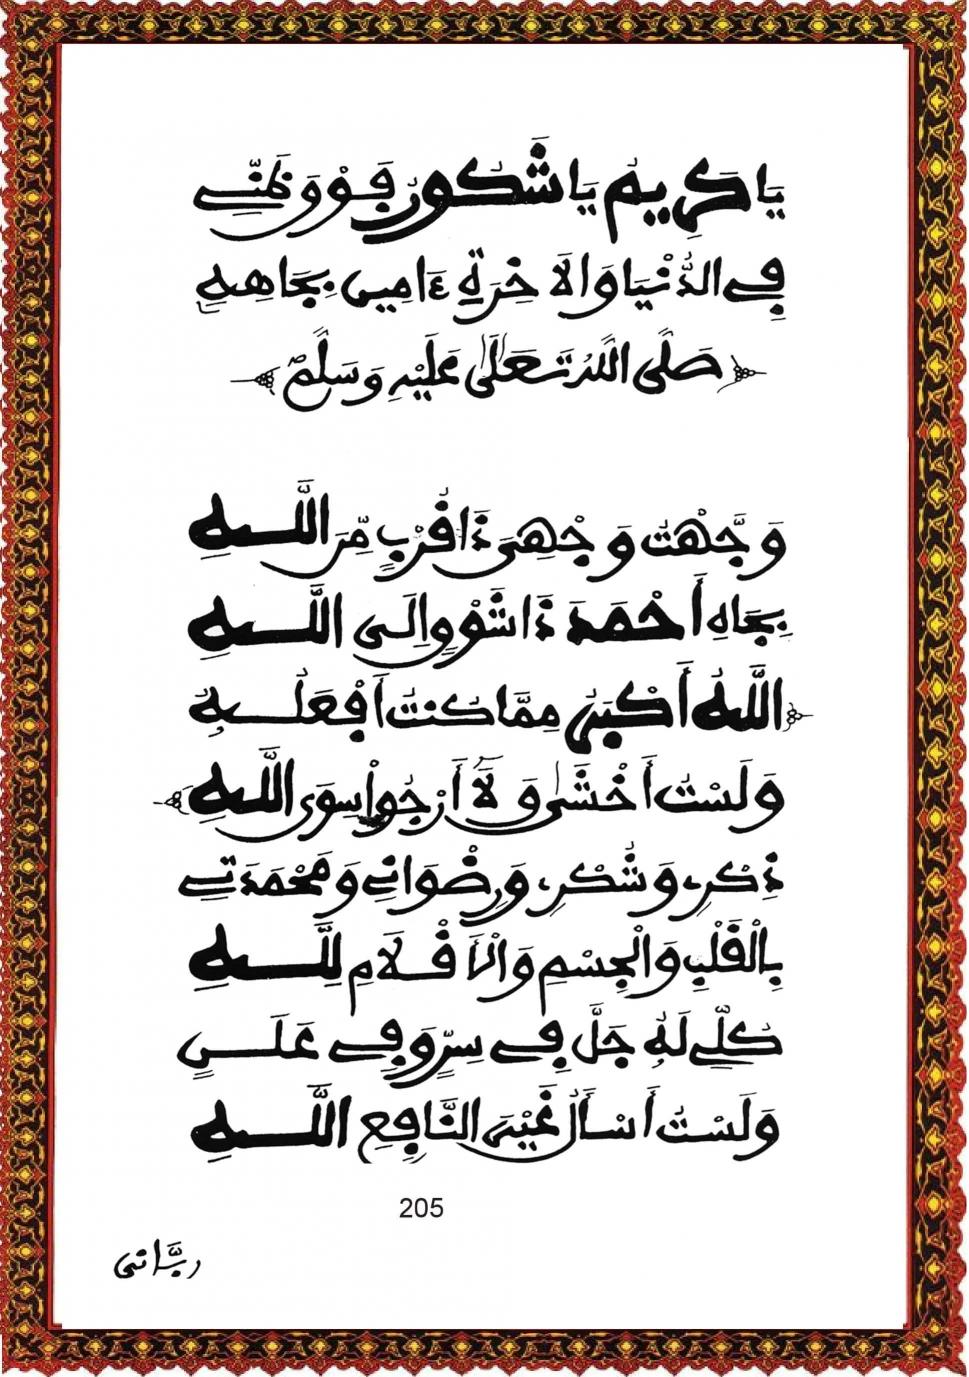 يَا كَرِيمُ يَا شَكُورُ فَوْقَ ظَنِّے
فِے الدُّنْيَا وَالَاخِرَةِ ءَامِين بِجَاهِهِ
صَلَّى اللَّهُ تَعَلَى عَلَيْهِ وَسَلَّمَ
وَجَّهْتُ وَجْهِىَ ذَا قُرْبٍ مِّنَ اللَّهِ
بِجَاهِ أَحْمَدَ ذَا شَوْقٍ اِلَى اللَّهِ
اللَّهُ أَكْبَرُ مِمَّا كُنتُ أَفْعَلُهُ
وَلَسْتُ أَخْشَى وَلَآ أَرْجُوا سِوَى اللَّهِ
ذِكْرِے وَشُكْرِے وَرِضْوَانِے وَمَحْمَدَتِے
بِالْقَلْبِ وَالْجِسْمِ وَالَاقْلَامِ لِلَّهِ
كُلِّے لَهُ جَلَّ فِے سِرٍّ وَفِے عَلَنٍ
وَلَسْتُ أَسْأَلُ غَيْرَ النَّافِعِ اللَّهِ
205
ربَّانى